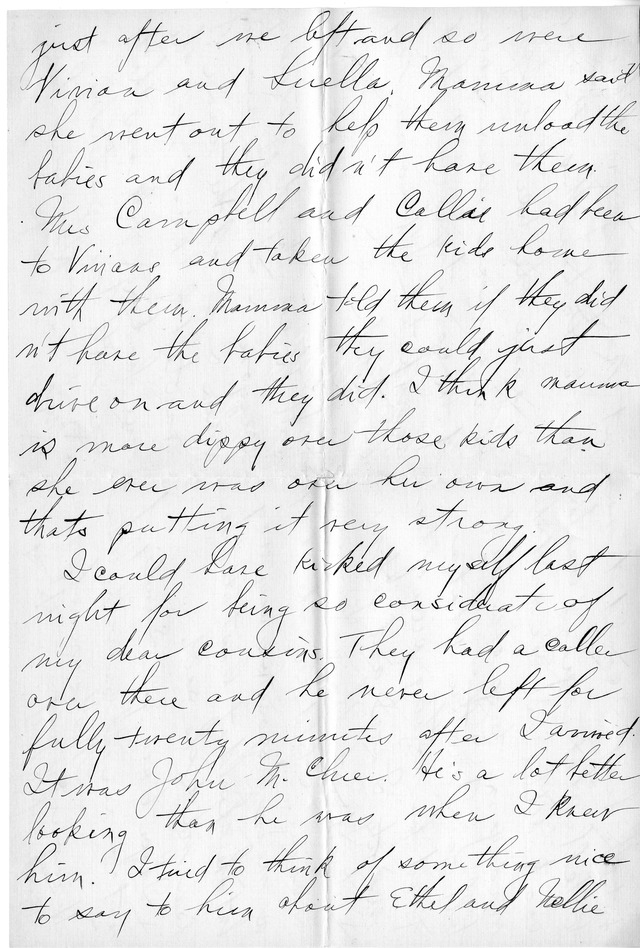 just after we left and so were
Vivian and Luella. Mamma said
she went out to help them unload the
babies and they didn't have them.
Mrs Campbell and Callie had been
to Vivians and taken the kids home
with them. Mamma told them if they did
n't have the babies they could just
drive on and they did. I think mamma
is more dippy over those kids than
she ever was over her own and
thats putting it very strong.
I could have kicked myself last
night for being so considerate of
my dear cousins. They had a caller
over there and he never left for
fully twenty minutes after I arrived.
It was John M. He's a lot better
looking than he was when I knew
him. I tried to think of something nice
to say to him about Ethel and Nellie